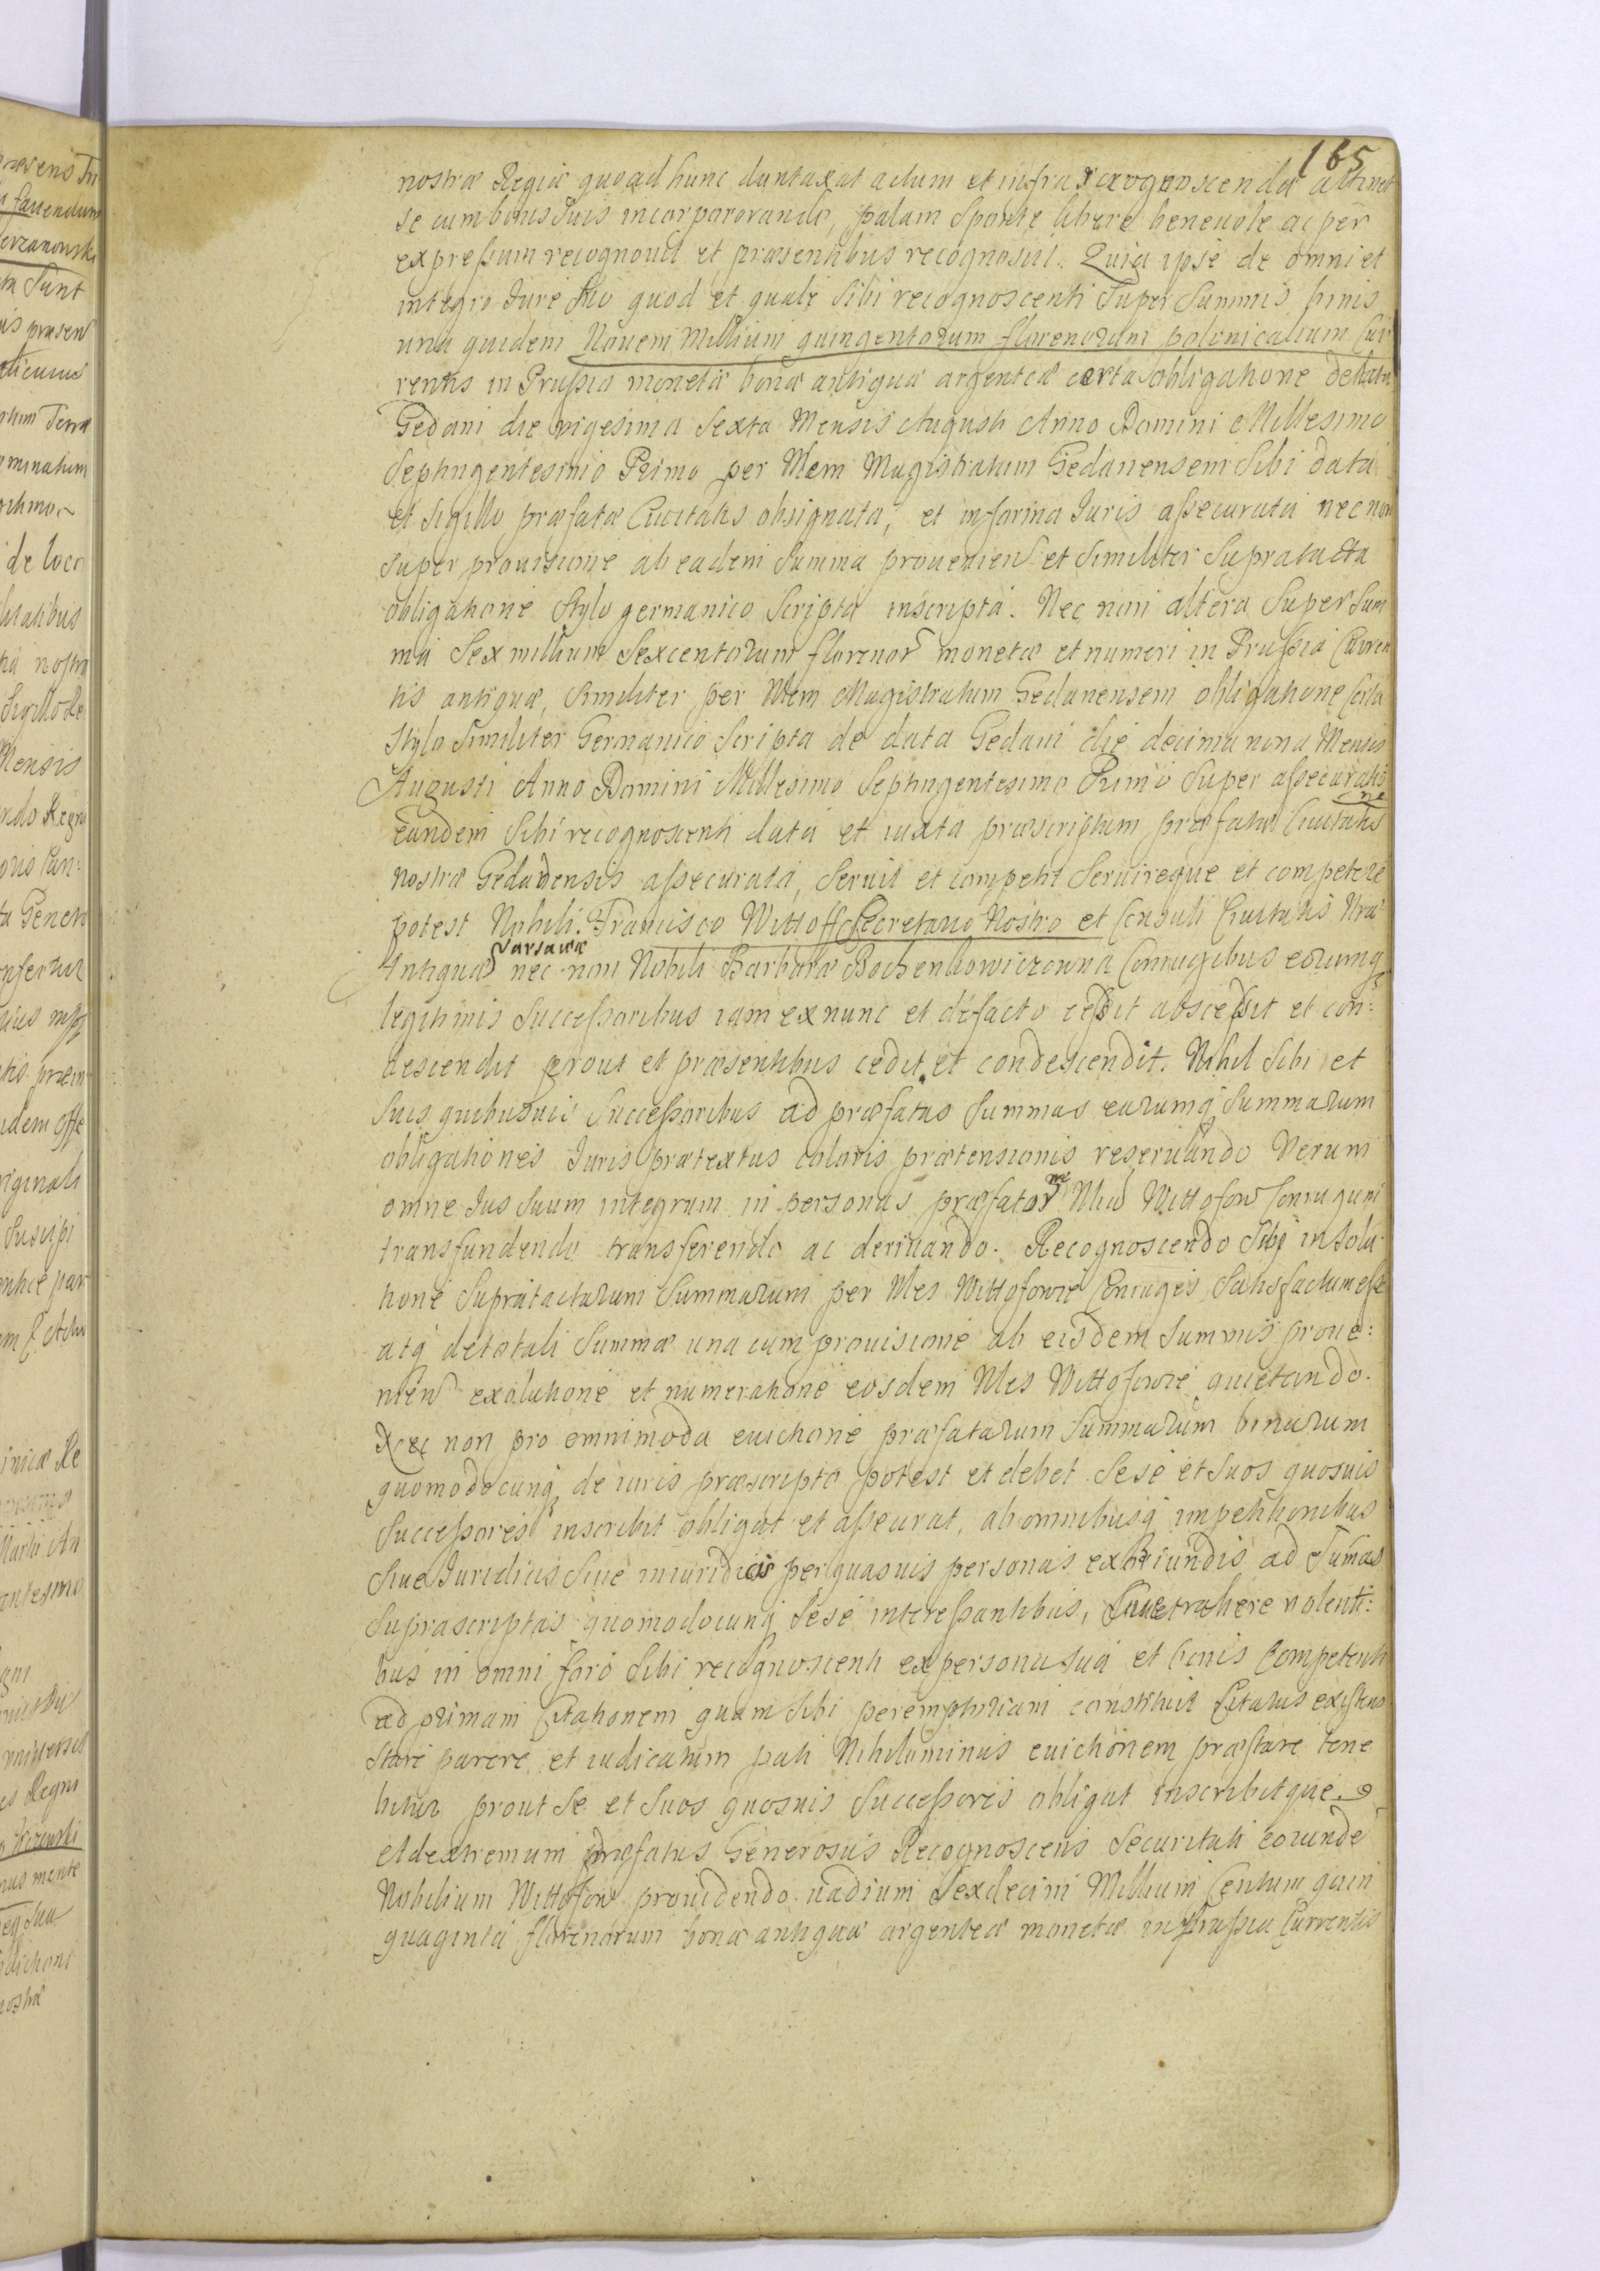 165
nostræ Regiæ quoad hunc duntaxat actum et infra recognoscenda attinet
se cum bonis suis incorporando, palam sponte libere beneuole ac per
expressum recognouit et præsentibus recognoscit. Quia ipse de omni et
integro Jure suo quod et quale sibi recognoscenti super summis binis
una quidem Nouem Millium quingentorum florenorum polonicalium Cur
rentis in Prussia monetæ bonæ antiquæ argenteæ certa obligatione de data
Gedani die vigesima sexta Mensis Augusti Anno Domini Millesimo
Septingentesimo Primo per Nlem Magistratum Gedanensem sibi data
et sigillo præfatæ Ciuitatis obsignata, et in forma Juris assecurata nec non
super prouisione ab eadem summa prouenien et similiter supratacta
obligatione stylo germanico scripta inscripta. Nec non altera super sum
ma sex millium sexcentorum florenor monetæ et numeri in Prussia Curren
tis antiquæ, similiter per Nlem Magistratum Gedanensem obligatione certa
stylo similiter Germanico scripta de data Gedani die decima nona Mensis
Augusti Anno Domini Millesimo Septingentesimo Primo super assecuratio
ne
eandem sibi recognoscenti data et iuxta præscriptum præfatæ Ciuitatis
nostræ Gedanensis assecurata, seruit et competit seruireque et competere
potest Nobili Francisco Wittoff Secretario Nostro et Consuli Ciuitatis Nræ
Varsauiæ
Antiquæ nec non Nobili Barbaræ Bochenkowiczowna Coniugibus eorumq
legitimis successoribus iam ex nunc et de facto cedit abscedit et con:
descendit prout et præsentibus cedit et condescendit. Nihil sibi et
suis quibusuis successoribus ad præfatas summas earumq summarum
obligationes Juris prætextus coloris prætensionis reseruando Verum
omne Jus suum integrum in personas præfator Nliu Wittofow Coniugum
transfundendo transferendo ac deriuando. Recognoscendo sibi in solu
tione supratactarum summarum per Nles Wittofowie Coniuges satisfactum esse
atq de totali summa una cum prouisione ab eisdem summis proue:
nien exolutione et numeratione eosdem Nles Wittofowie quietando.
Nec non pro omnimoda euictione præfatarum summarum binarum
quomodocunq de iuris præscripto potest et debet sese et suos quosuis
successores inscribit obligat et assecurat, ab omnibusq impetitionibus
siue Juridicis siue iniuridicis per quasuis personas exoriundis ad sumas
suprascriptas quomodocunq sese interessantibus, siue trahere volenti:
bus in omni foro sibi recognoscenti ex persona sua et bonis Competenti
ad primam Citationem quam sibi peremptoriam constituit Citatus existens
stare parere et iudicatum pati Nihilominus euictionem præstare tene
bitur prout se et suos quosuis successores obligat inscribitque
Ad extremum præfatus Generosus Recognoscens securitati eorunde
Nobilium Wittofow prouidendo vadium sexdecim Millium Centum quin
quaginta florenorum bonæ antiquæ argenteæ monetæ in Prussia Currentis